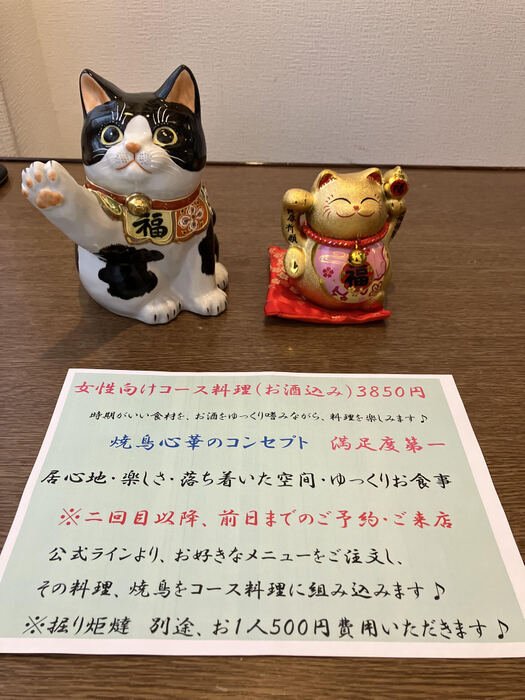 福
福
女性向けコース料理(お酒込み)3850円
時期がいい食材を、お酒をゆっくり嗜みながら、料理を楽しみます♪
焼鳥心華のコンセプト 満足度第一
居心地・楽しさ・落ち着いた空間・ゆっくりお食事
※二回目以降、前日までのご予約・ご来店
公式ラインより、お好きなメニューをご注文し、
その料理、焼鳥をコース料理に組み込みます♪
※掘り炬燵 別途、お1人500円費用いただきます♪